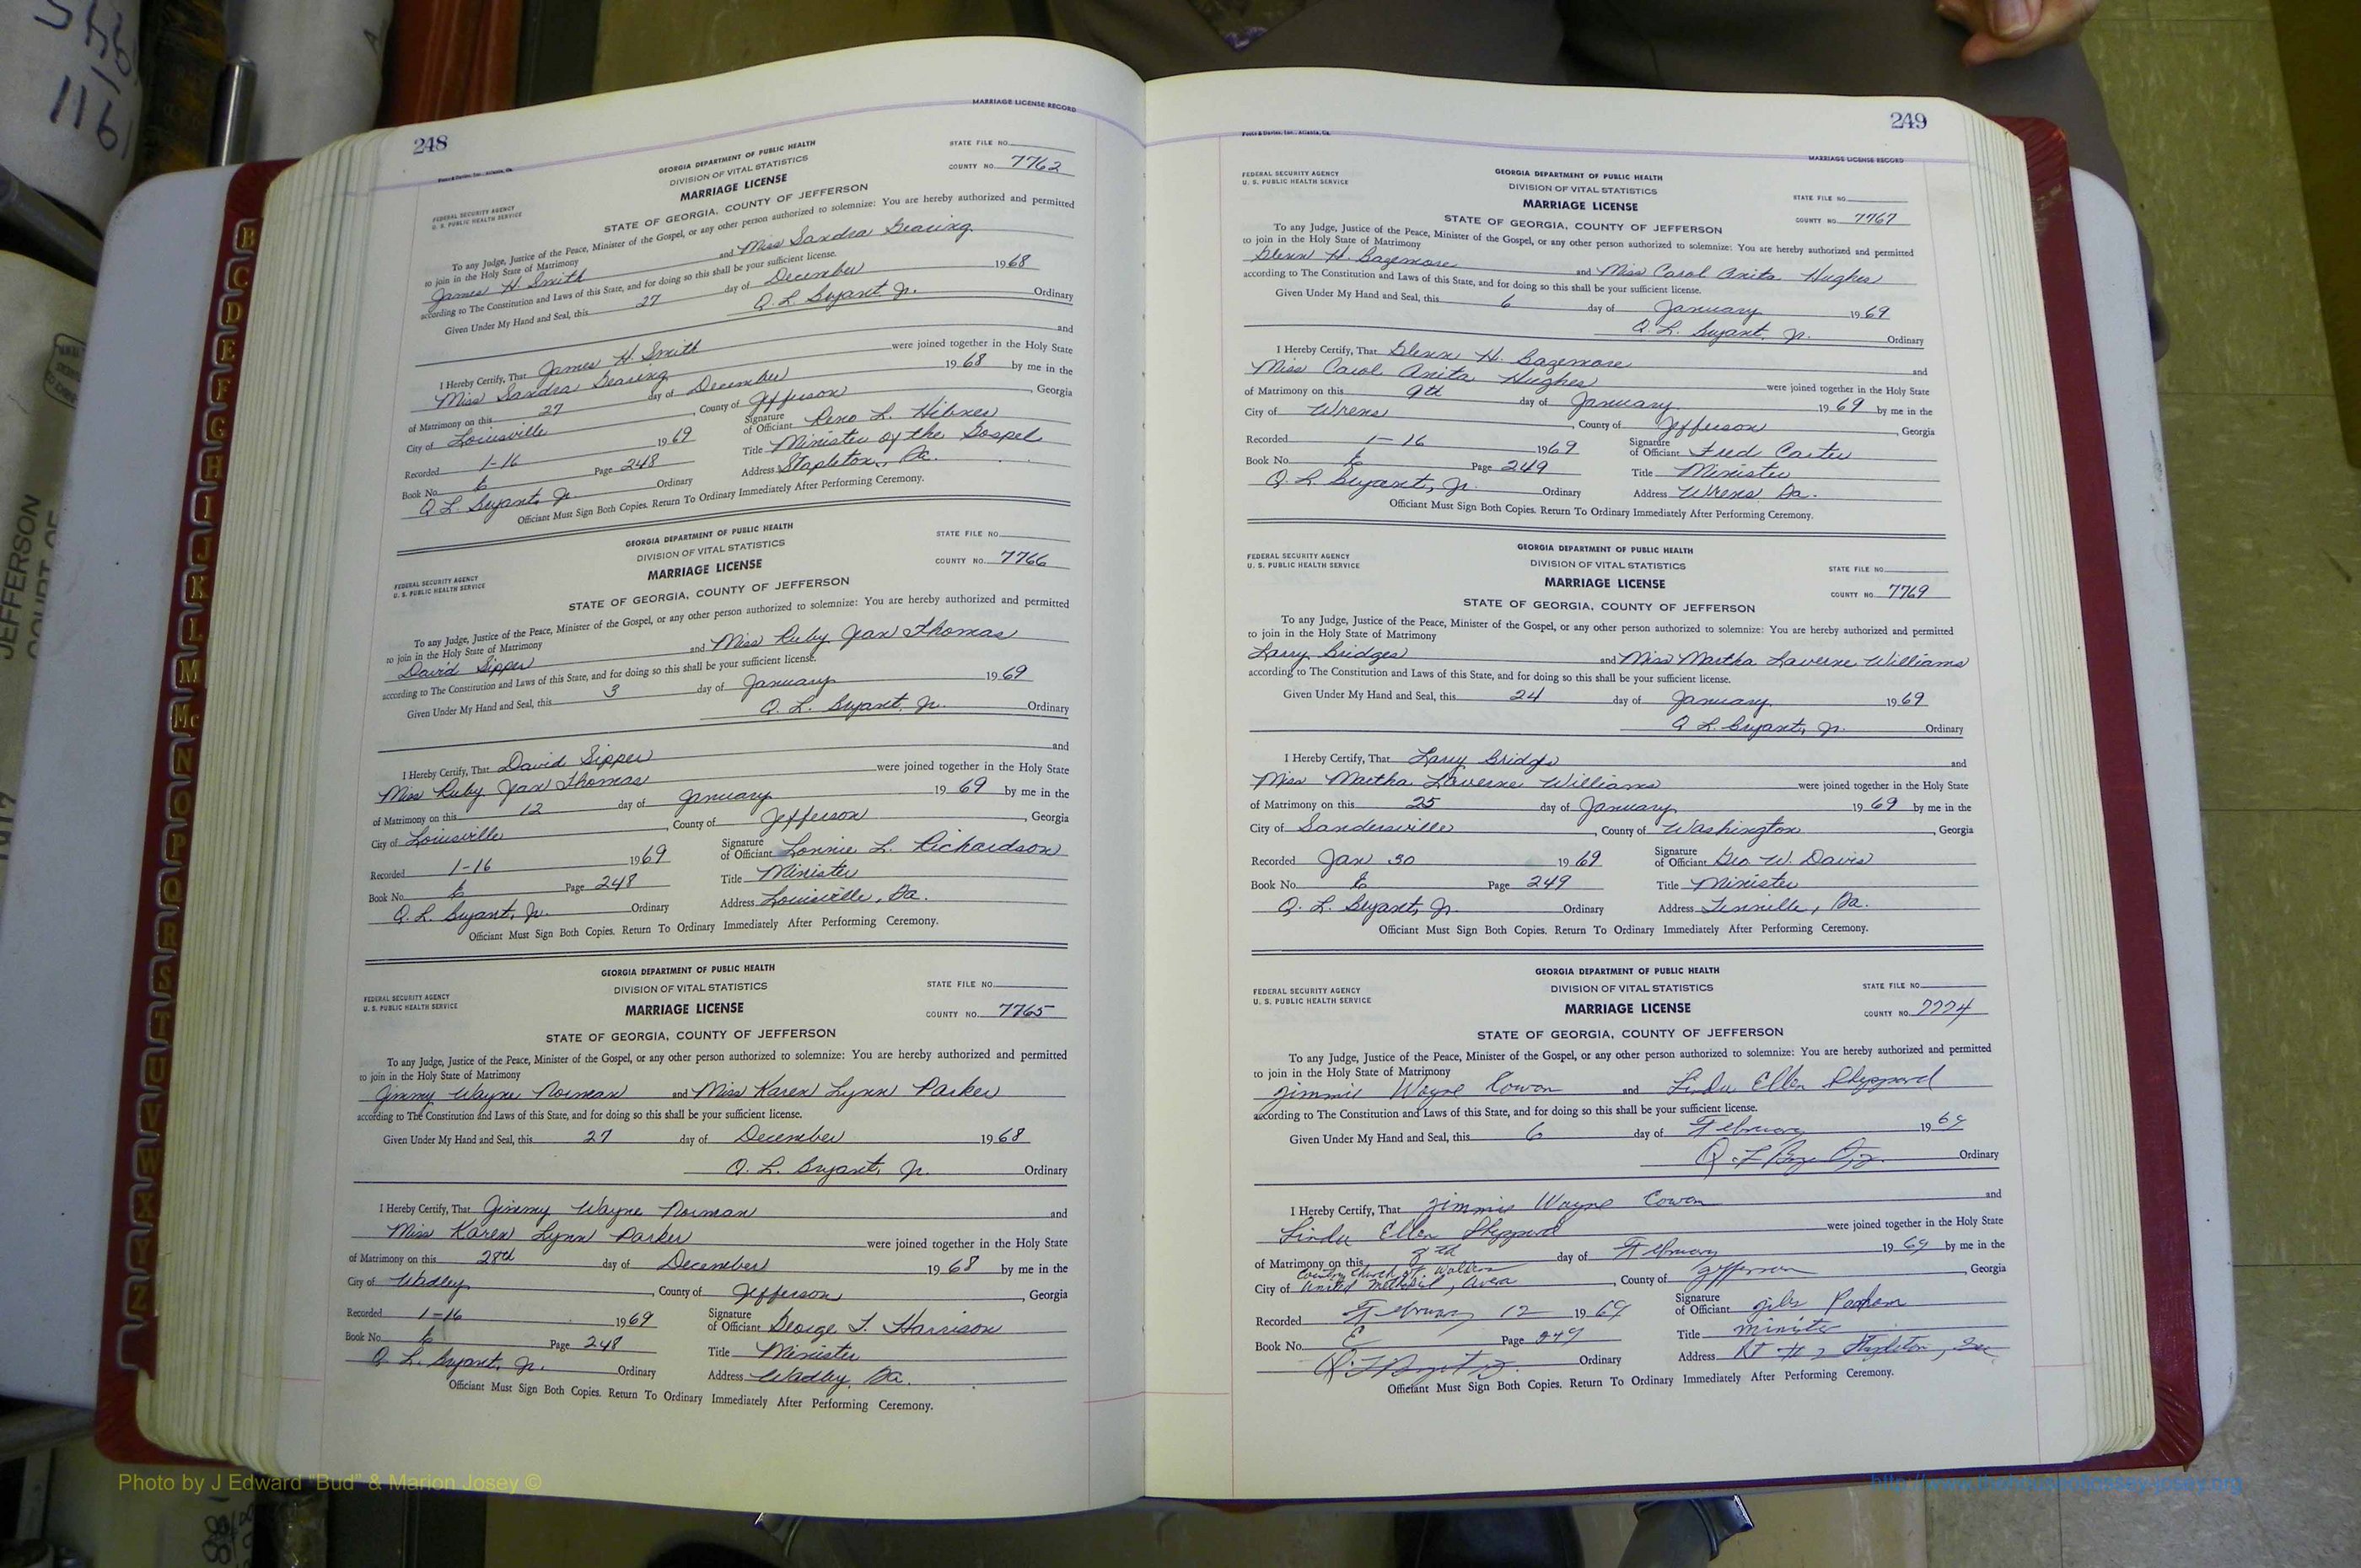 248
MARRIAGE LICENSE RECORD
Foote & Davies, Inc., Atlanta, Ga.
GEORGIA DEPARTMENT OF PUBLIC HEALTH
DIVISION OF VITAL STATISTICS
MARRIAGE LICENSE
STATE FILE NO.
COUNTY NO. 7762
FEDERAL SECURITY AGENCY
U. S. PUBLIC HEALTH SERVICE
STATE OF GEORGIA, COUNTY OF JEFFERSON
To any Judge, Justice of the Peace, Minister of the Gospel, or any other person authorized to solemnize: You are hereby authorized and permitted
to join in the Holy State of Matrimony
James H. Smith and Miss Sandra Gearing
according to The Constitution and Laws of this State, and for doing so this shall be your sufficient license.
Given Under My Hand and Seal, this 27 day of December 1968
Q. L. Bryant, Jr. Ordinary
I Hereby Certify, That James H. Smith and
Miss Sandra Gearing were joined together in the Holy State
of Matrimony on this 27 day of December 1968 by me in the
City of Louisville, County of Jefferson, Georgia
Recorded 1-16 1969 Signature of Officiant Reno L. Hibner
Book No. 6 Page 248 Title Minister of the Gospel
Q. L. Bryant, Jr. Ordinary Address Stapleton, Ga.
Officiant Must Sign Both Copies. Return To Ordinary Immediately After Performing Ceremony.
GEORGIA DEPARTMENT OF PUBLIC HEALTH
DIVISION OF VITAL STATISTICS
MARRIAGE LICENSE
STATE FILE NO.
COUNTY NO. 7766
FEDERAL SECURITY AGENCY
U. S. PUBLIC HEALTH SERVICE
STATE OF GEORGIA, COUNTY OF JEFFERSON
To any Judge, Justice of the Peace, Minister of the Gospel, or any other person authorized to solemnize: You are hereby authorized and permitted
to join in the Holy State of Matrimony
David Sipper and Miss Ruby Jean Thomas
according to The Constitution and Laws of this State, and for doing so this shall be your sufficient license.
Given Under My Hand and Seal, this 3 day of January 1969
Q. L. Bryant, Jr. Ordinary
I Hereby Certify, That David Sipper and
Miss Ruby Jean Thomas were joined together in the Holy State
of Matrimony on this 12 day of January 1969 by me in the
City of Louisville, County of Jefferson, Georgia
Recorded 1-16 1969 Signature of Officiant Lonnie L. Richardson
Book No. 6 Page 248 Title Minister
Q. L. Bryant, Jr. Ordinary Address Louisville, Ga.
Officiant Must Sign Both Copies. Return To Ordinary Immediately After Performing Ceremony.
GEORGIA DEPARTMENT OF PUBLIC HEALTH
DIVISION OF VITAL STATISTICS
MARRIAGE LICENSE
STATE FILE NO.
COUNTY NO. 7765
FEDERAL SECURITY AGENCY
U. S. PUBLIC HEALTH SERVICE
STATE OF GEORGIA, COUNTY OF JEFFERSON
To any Judge, Justice of the Peace, Minister of the Gospel, or any other person authorized to solemnize: You are hereby authorized and permitted
to join in the Holy State of Matrimony
Jimmy Wayne Norman and Miss Karen Lynn Parker
according to The Constitution and Laws of this State, and for doing so this shall be your sufficient license.
Given Under My Hand and Seal, this 27 day of December 1968
Q. L. Bryant, Jr. Ordinary
I Hereby Certify, That Jimmy Wayne Norman and
Miss Karen Lynn Parker were joined together in the Holy State
of Matrimony on this 28th day of December 1968 by me in the
City of Wadley, County of Jefferson, Georgia
Recorded 1-16 1969 Signature of Officiant George T. Harrison
Book No. 6 Page 248 Title Minister
Q. L. Bryant, Jr. Ordinary Address Wadley, Ga.
Officiant Must Sign Both Copies. Return To Ordinary Immediately After Performing Ceremony.
249
Foote & Davies, Inc., Atlanta, Ga.
MARRIAGE LICENSE RECORD
FEDERAL SECURITY AGENCY
U. S. PUBLIC HEALTH SERVICE
GEORGIA DEPARTMENT OF PUBLIC HEALTH
DIVISION OF VITAL STATISTICS
MARRIAGE LICENSE
STATE FILE NO.
COUNTY NO. 7767
STATE OF GEORGIA, COUNTY OF JEFFERSON
To any Judge, Justice of the Peace, Minister of the Gospel, or any other person authorized to solemnize: You are hereby authorized and permitted
to join in the Holy State of Matrimony
Glenn H. Bazemore and Miss Carol Anita Hughes
according to The Constitution and Laws of this State, and for doing so this shall be your sufficient license.
Given Under My Hand and Seal, this 6 day of January 1969
Q. L. Bryant, Jr. Ordinary
I Hereby Certify, That Glenn H. Bazemore and
Miss Carol Anita Hughes were joined together in the Holy State
of Matrimony on this 9th day of January 1969 by me in the
City of Wrens, County of Jefferson, Georgia
Recorded 1-16 1969 Signature of Officiant Fred Carter
Book No. 6 Page 249 Title Minister
Q. L. Bryant, Jr. Ordinary Address Wrens Ga.
Officiant Must Sign Both Copies. Return To Ordinary Immediately After Performing Ceremony.
GEORGIA DEPARTMENT OF PUBLIC HEALTH
DIVISION OF VITAL STATISTICS
MARRIAGE LICENSE
FEDERAL SECURITY AGENCY
U. S. PUBLIC HEALTH SERVICE
STATE FILE NO.
COUNTY NO. 7769
STATE OF GEORGIA, COUNTY OF JEFFERSON
To any Judge, Justice of the Peace, Minister of the Gospel, or any other person authorized to solemnize: You are hereby authorized and permitted
to join in the Holy State of Matrimony
Larry Bridges and Miss Martha Laverne Williams
according to The Constitution and Laws of this State, and for doing so this shall be your sufficient license.
Given Under My Hand and Seal, this 24 day of January 1969
Q. L. Bryant, Jr. Ordinary
I Hereby Certify, That Larry Bridges and
Miss Martha Laverne Williams were joined together in the Holy State
of Matrimony on this 25 day of January 1969 by me in the
City of Sandersville, County of Washington, Georgia
Recorded Jan 30 1969 Signature of Officiant Geo. W. Davis
Book No. E Page 249 Title Minister
Q. L. Bryant, Jr. Ordinary Address Tennille, Ga.
Officiant Must Sign Both Copies. Return To Ordinary Immediately After Performing Ceremony.
GEORGIA DEPARTMENT OF PUBLIC HEALTH
DIVISION OF VITAL STATISTICS
MARRIAGE LICENSE
FEDERAL SECURITY AGENCY
U. S. PUBLIC HEALTH SERVICE
STATE FILE NO.
COUNTY NO. 7774
STATE OF GEORGIA, COUNTY OF JEFFERSON
To any Judge, Justice of the Peace, Minister of the Gospel, or any other person authorized to solemnize: You are hereby authorized and permitted
to join in the Holy State of Matrimony
Jimmie Wayne Cowan and Linda Ellen Sheppard
according to The Constitution and Laws of this State, and for doing so this shall be your sufficient license.
Given Under My Hand and Seal, this 6 day of February 1969
Q. L. Bryant Jr. Ordinary
I Hereby Certify, That Jimmie Wayne Cowan and
Linda Ellen Sheppard were joined together in the Holy State
of Matrimony on this day of February 1969 by me in the
Country Church of
City of United Methodist, Avera, County of Jefferson, Georgia
Recorded February 12 1969 Signature of Officiant
Book No. E Page 249 Title minister
Q. L. Bryant Jr. Ordinary Address Rt # 2 Stapleton, Ga
Officiant Must Sign Both Copies. Return To Ordinary Immediately After Performing Ceremony.
B
C
D
E
F
G
H
I
J
K
L
M
Mc
N
O
P
Q
R
S
T
U
V
W
X
Y
Z
JEFFERSON
COURT OF
Photo by J Edward "Bud" & Marion Josey ©